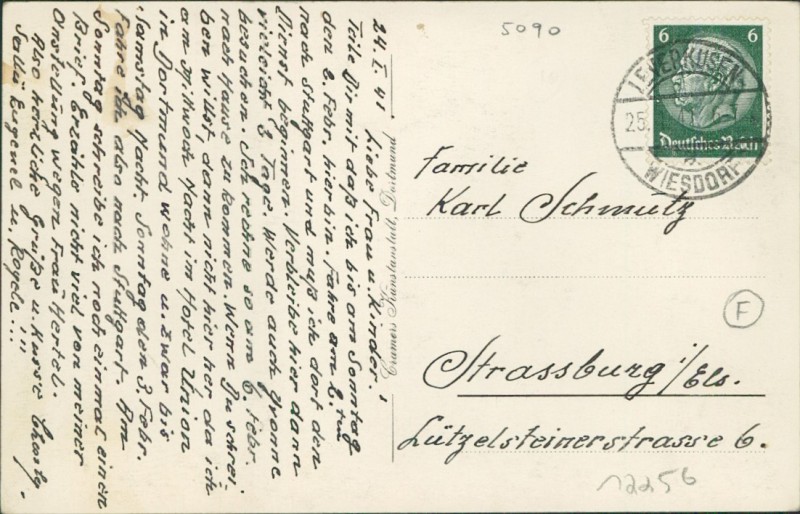 24. I. 41
Liebe Frau u. Kinder!
Teile Dir mit daß ich bis am Sonntag
den 2. Febr. hier bin. Fahre am 2. ten
nach Stuttgart und muß ich dort den
Dienst beginnen. Verbleibe hier dann
vieleicht 3 Tage. Werde auch Yvonne
besuchen. Ich rechne so am 6. Febr.
nach Hause zu kommen. Wenn Du schrei-
ben willst, dann nicht hier her, da ich
am Mittwoch Nacht im Hotel Union
in Dortmund wohne u. zwar bis
Samstag Nacht. Sonntag den 3. Febr.
fahre ich also nach Stuttgart. Am
Sonntag schreibe ich noch einmal einen
Brief. Erzähle nicht viel von meiner
Anstellung wegen Frau Hertel.
Also herzliche Grüße u. Küsse
Sallü Eugenel u. Rogele!!!
Cramers Kunstanstalt, Dortmund
5090
6 6
Deutsches Reich
LEVERKUSEN-
25.
WIESDORF
Familie
Karl Schmutz
F
Strassburg i/Els.
Lützelsteinerstrasse 6.
12256